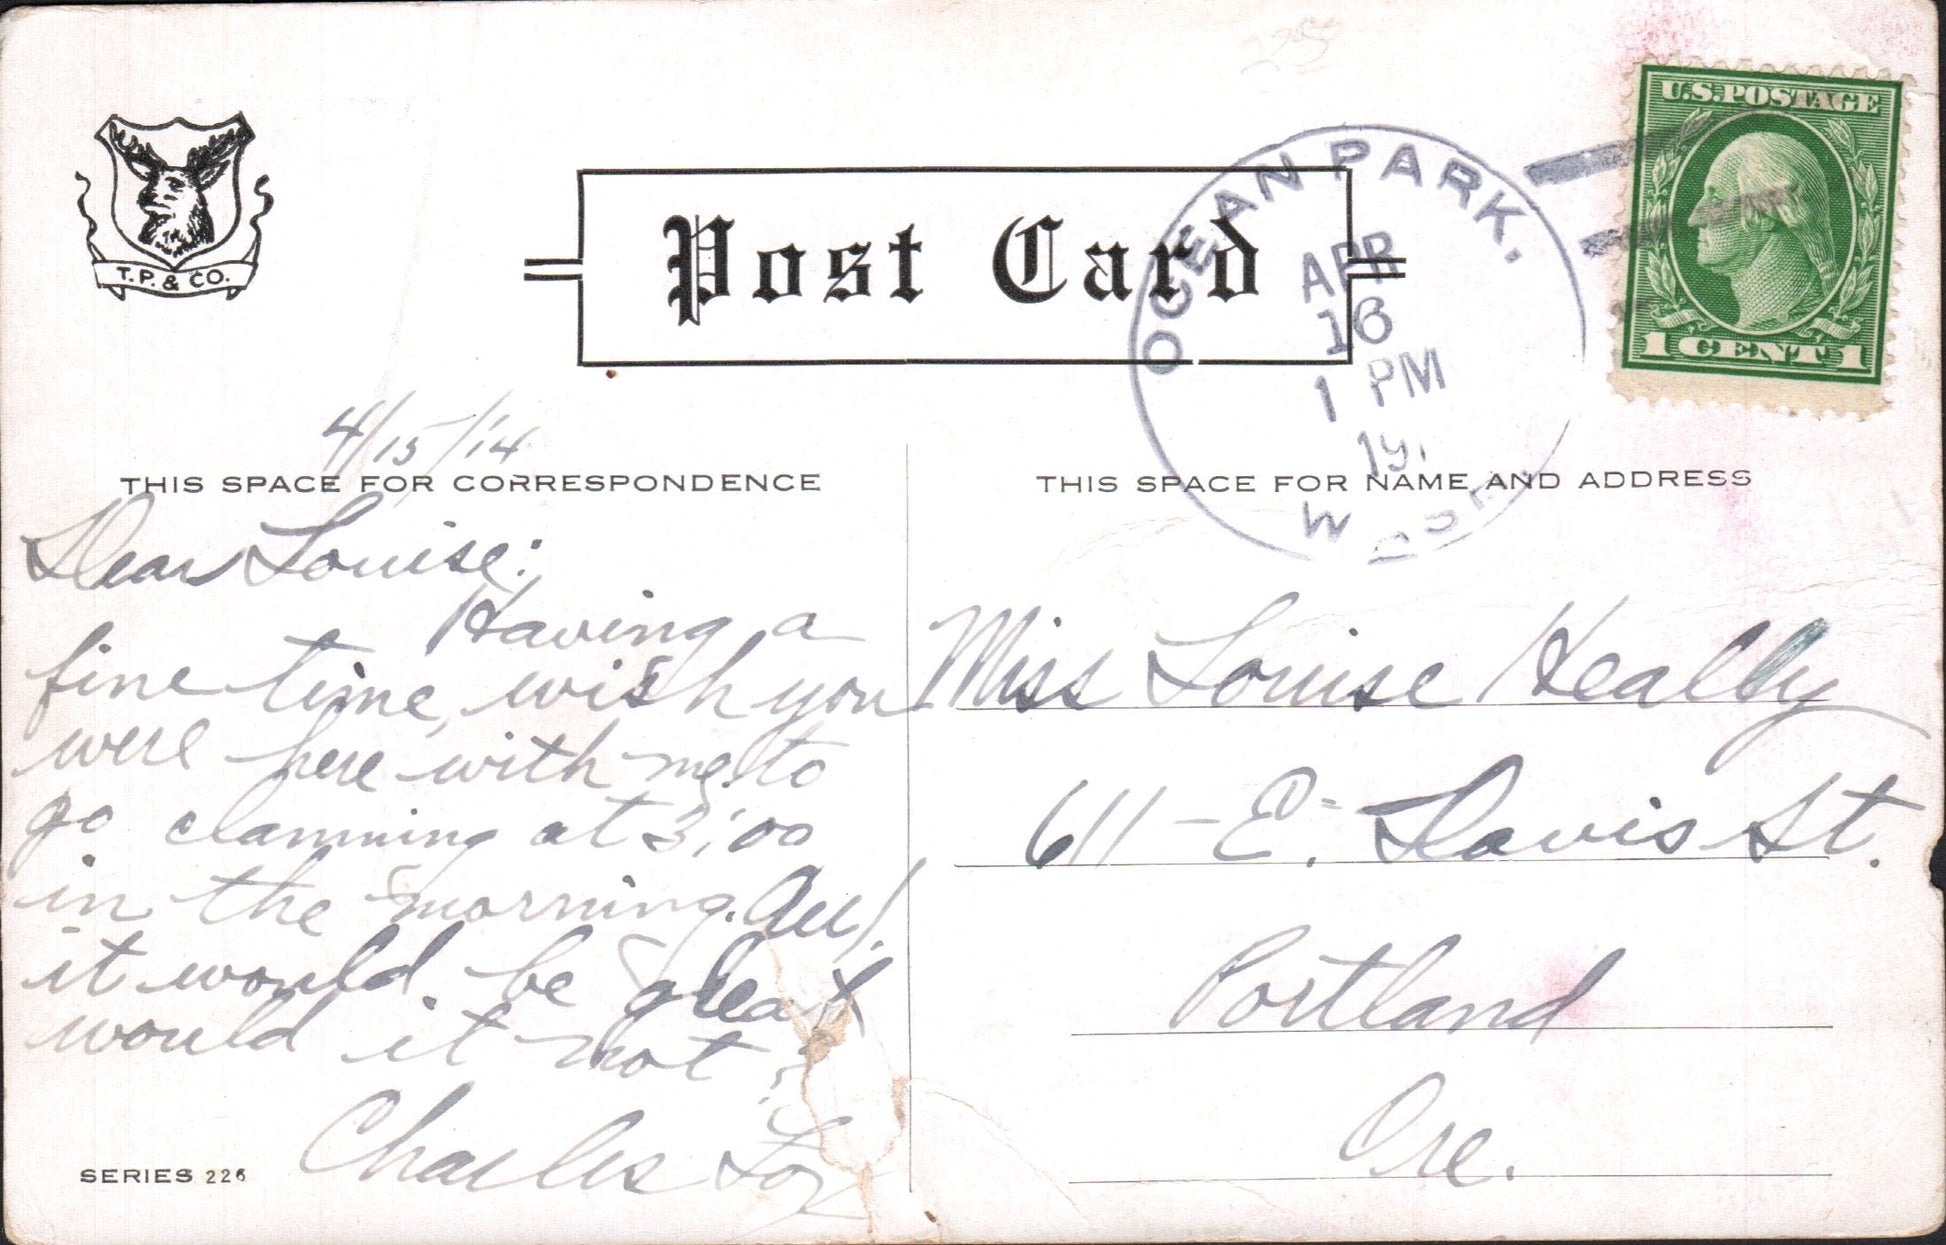 255
U.S.POSTAGE
1 CENT 1
T.P. & CO.
Post Card
OCEAN PARK,
APR
16
1 PM
191
WASH.
4/15/14
THIS SPACE FOR CORRESPONDENCE
THIS SPACE FOR NAME AND ADDRESS
Dear Louise:
Having a
fine time, wish you
were here with me to
go clamming at 3:00
in the morning.
it would be great
would it not?
Charles
Miss Louise Healby
611 - E. Davis St.
Portland
Ore.
SERIES 226